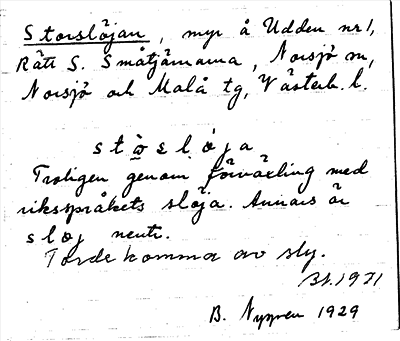 Storslöjan, myr å Udden nr 1,
Rätt S. Småtjärnarna, Norsjö sn,
Norsjö och Malå tg, Västerb. l.
stòsløja
Troligen genom förväxling med
riksspråkets slöja. Annars är
sløj neutr.
Torde komma av sly.
Bt. 1971
B. Nygren 1929